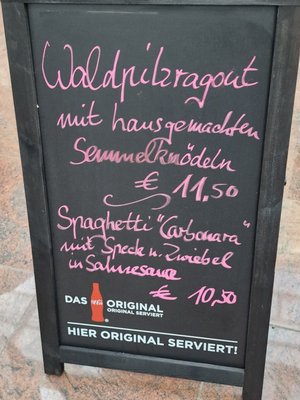 Waldpilzragout
mit hausgemachten
Semmelknödeln
€ 11,50
Spaghetti "Carbonara"
mit Speck u. Zwiebel
in Sahnesauce
€ 10,50
DAS ORIGINAL
ORIGINAL SERVIERT.
HIER ORIGINAL SERVIERT!